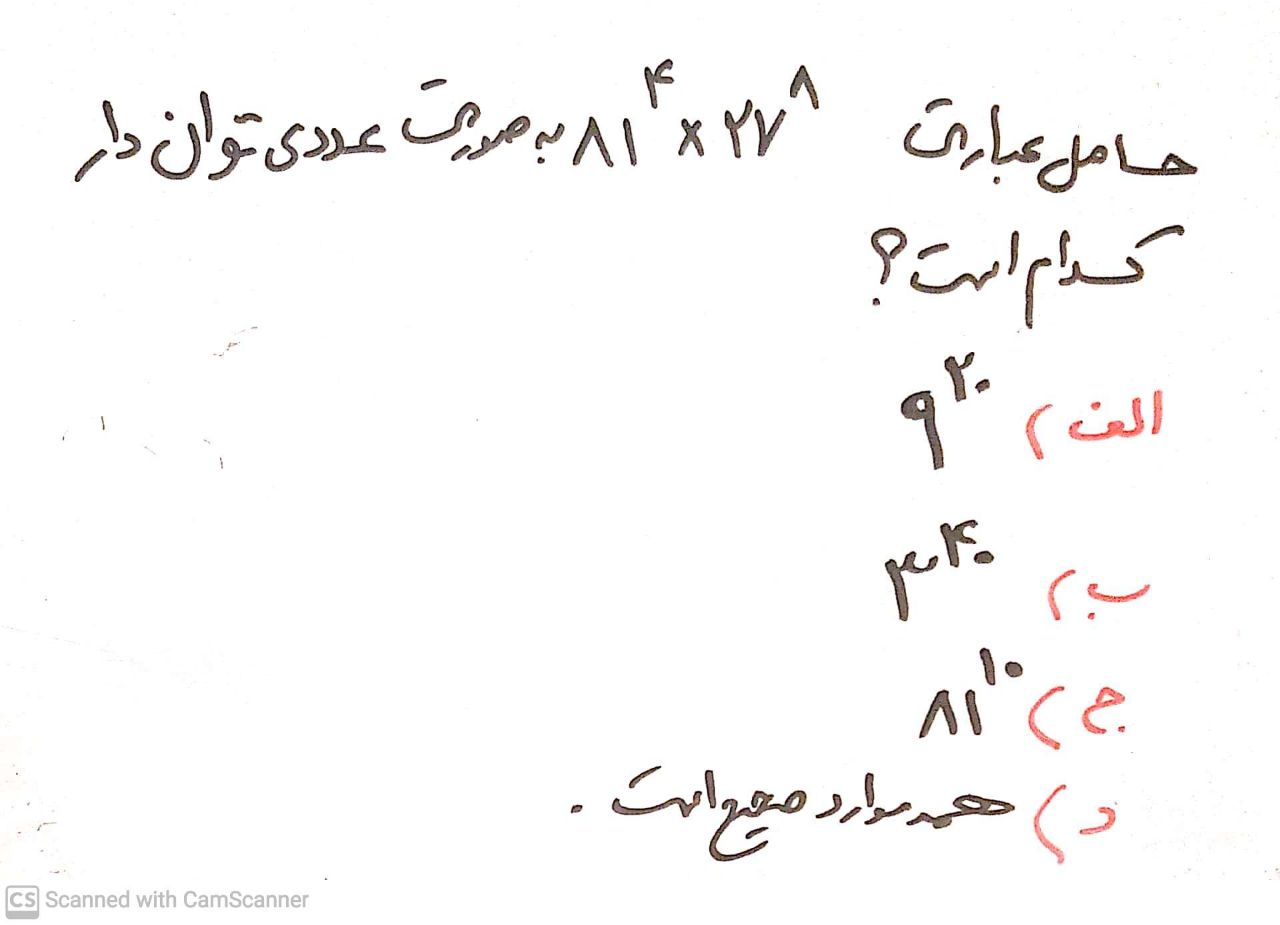 حاصل عبارت ۸۱^۴ × ۲۷^۸ به صورت عددی توان دار
کدام است؟
الف) ۹^۲۰
ب) ۳^۴۰
ج) ۸۱^۱۰
د) همه موارد صحیح است.
CS Scanned with CamScanner